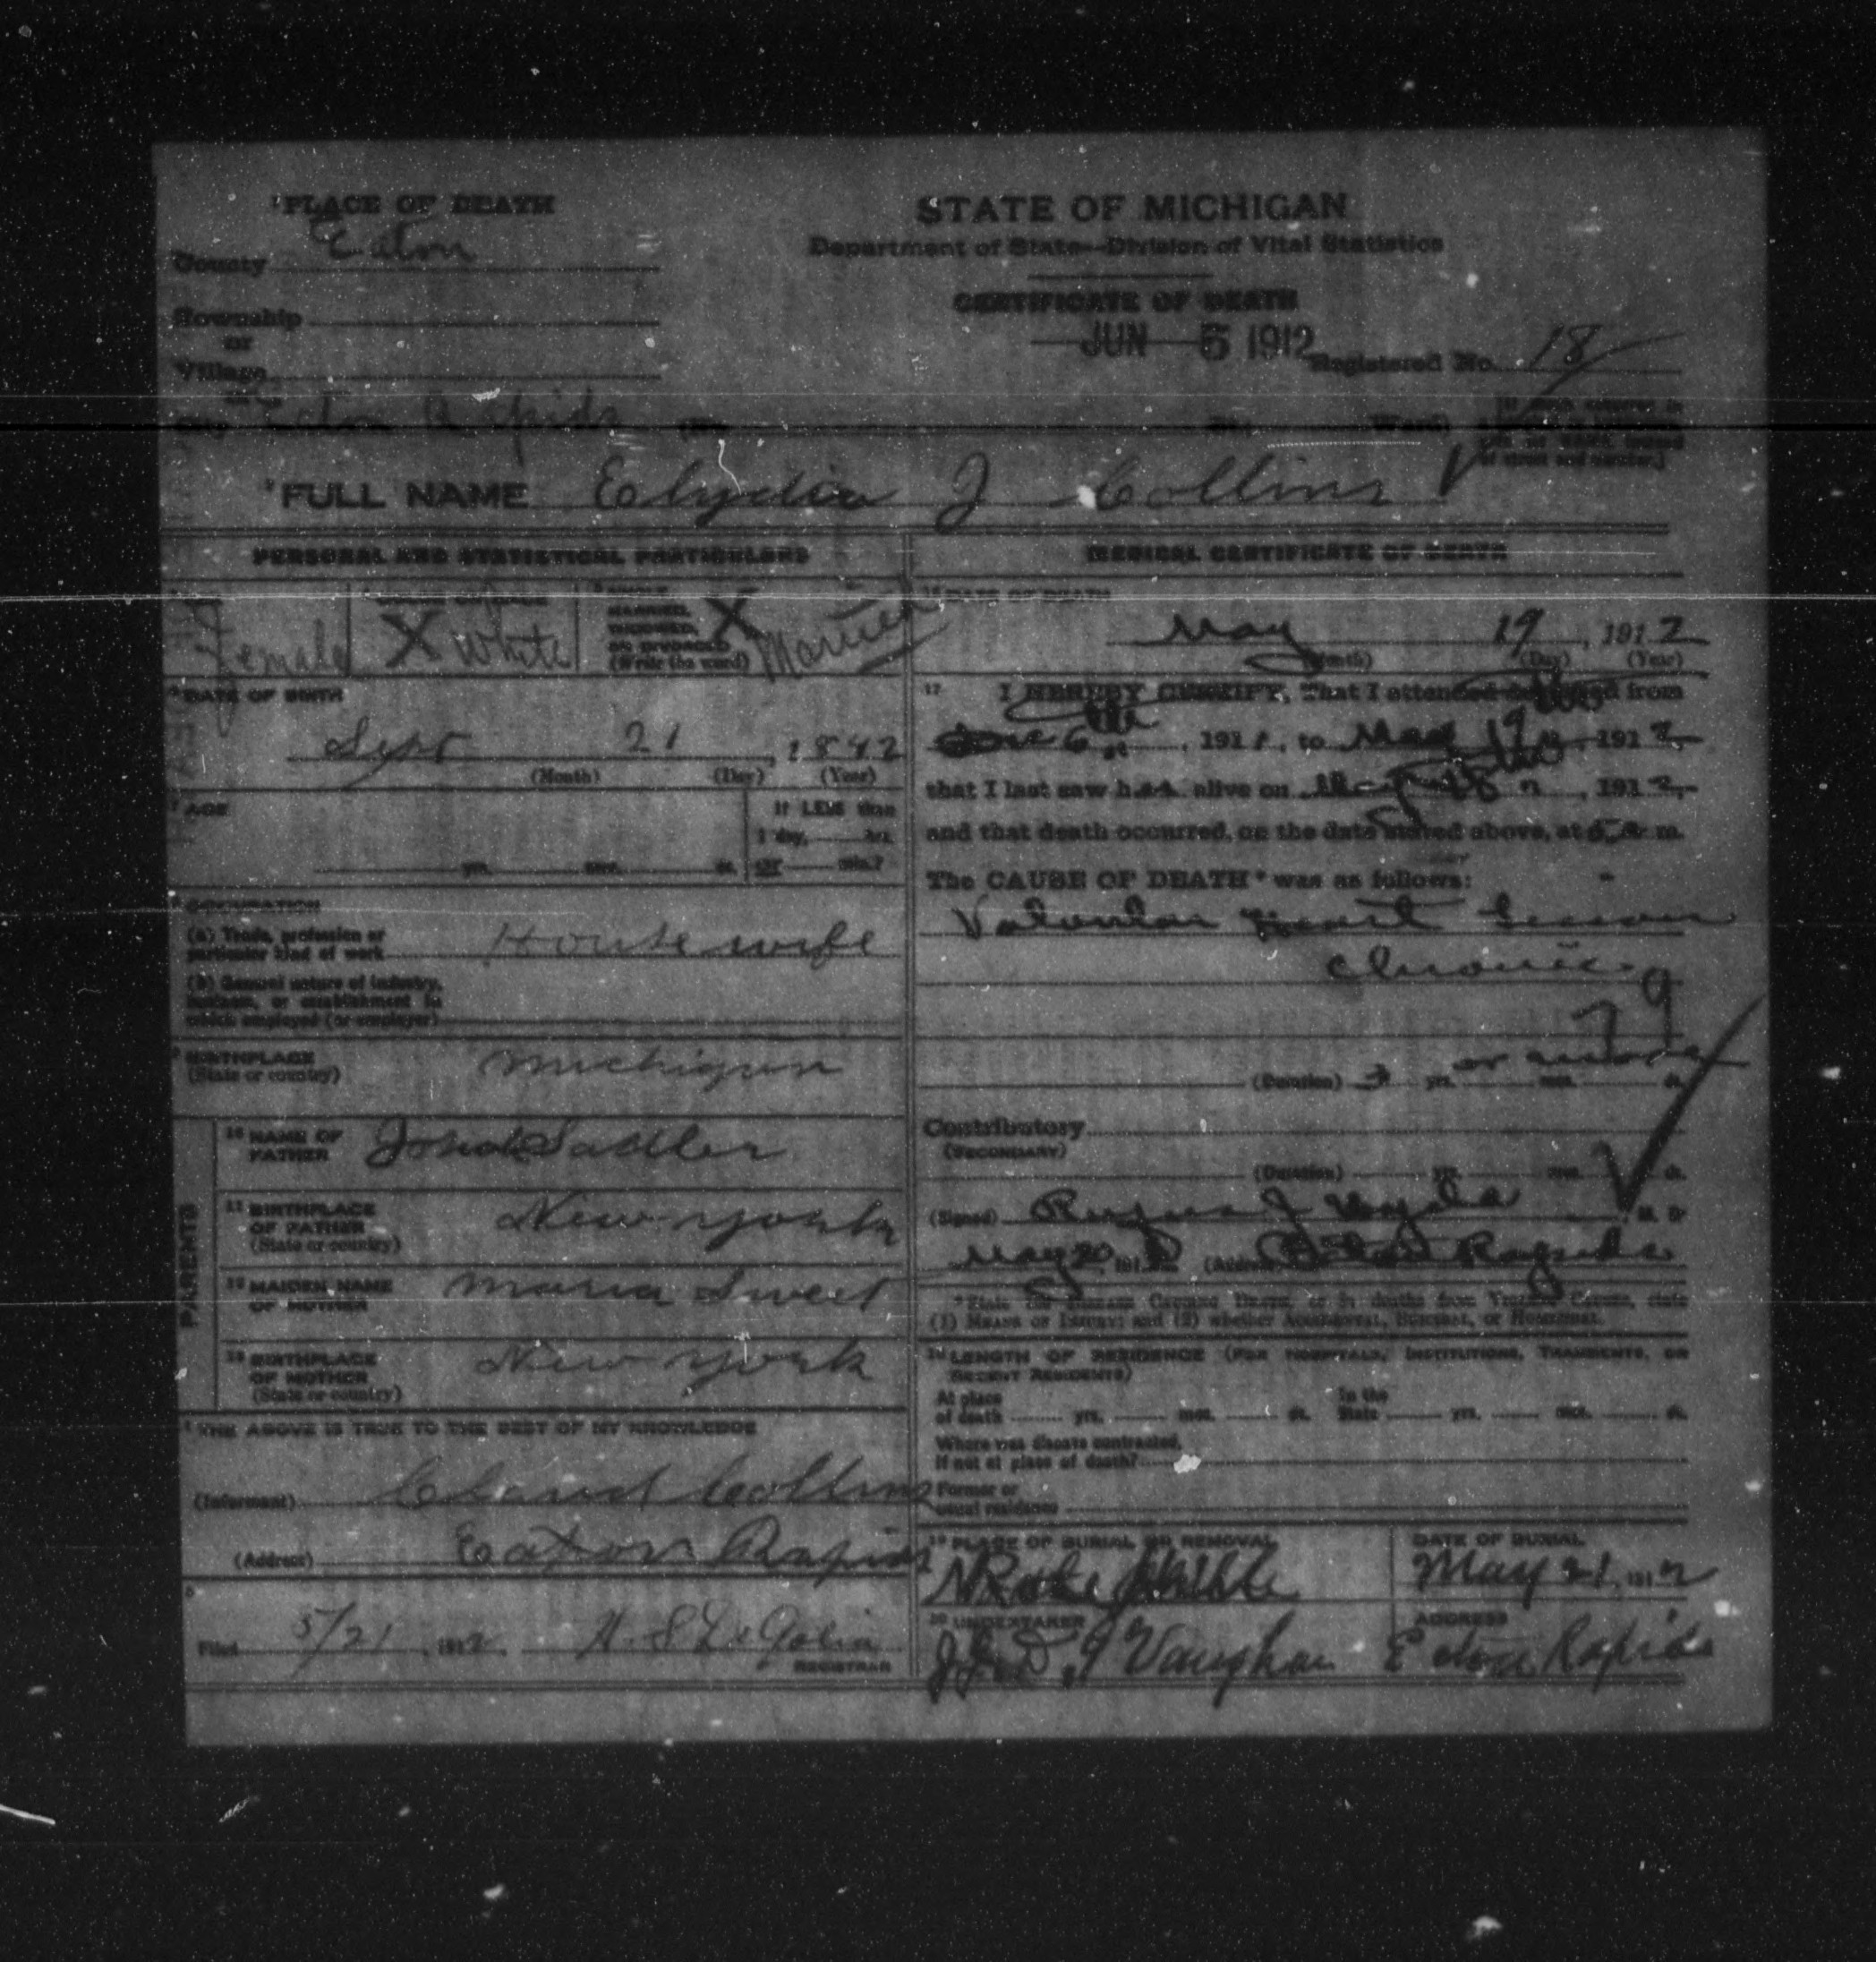 1 PLACE OF DEATH
County Eaton
Township
or
Village
or
City Eaton Rapids (No. St. Ward)
STATE OF MICHIGAN
Department of State—Division of Vital Statistics
CERTIFICATE OF DEATH
JUN 5 1912
Registered No. 18
2 FULL NAME Elydia J Collins
PERSONAL AND STATISTICAL PARTICULARS
Female
X White
MARRIED,
OR DIVORCED
(Write the word)
X Married
DATE OF BIRTH
Sept 21, 1842
(Month) (Day) (Year)
AGE
If LESS than
1 day, hrs.
yrs. mos. ds. or min.?
OCCUPATION
(a) Trade, profession or
particular kind of work Housewife
(b) General nature of industry,
business, or establishment in
which employed (or employer)
BIRTHPLACE
(State or country)
Michigan
PARENTS
10 NAME OF
FATHER
John Sadler
11 BIRTHPLACE
OF FATHER
(State or country)
New York
12 MAIDEN NAME
OF MOTHER
Maria Sweet
13 BIRTHPLACE
OF MOTHER
(State or country)
New York
THE ABOVE IS TRUE TO THE BEST OF MY KNOWLEDGE
(Informant) Collins
(Address) Eaton Rapids
Filed 5/21, 1912
REGISTRAR
MEDICAL CERTIFICATE OF DEATH
16 DATE OF DEATH
May 19, 1912
(Month) (Day) (Year)
17 I HEREBY CERTIFY, That I attended deceased from
, 1911, to May 19, 1912
that I last saw her alive on May 18, 1912
and that death occurred, on the date stated above, at m.
The CAUSE OF DEATH* was as follows:
Valvular Heart Lesion
Chronic
79
(Duration) yrs. or more mos. ds.
Contributory
(SECONDARY)
(Duration) yrs. mos. ds.
(Signed) Rufus J M. D.
May 20, 1912 (Address) Eaton Rapids
*State the Disease Causing Death, or in deaths from Violent Causes, state
(1) Means of Injury; and (2) whether Accidental, Suicidal, or Homicidal.
18 LENGTH OF RESIDENCE (FOR HOSPITALS, INSTITUTIONS, TRANSIENTS, OR
RECENT RESIDENTS)
At place In the
of death yrs. mos. ds. State yrs. mos. ds.
Where was disease contracted,
If not at place of death?
Former or
usual residence
19 PLACE OF BURIAL OR REMOVAL
Rose Hill
DATE OF BURIAL
May 21, 1912
20 UNDERTAKER
Vaughan
ADDRESS
Eaton Rapids